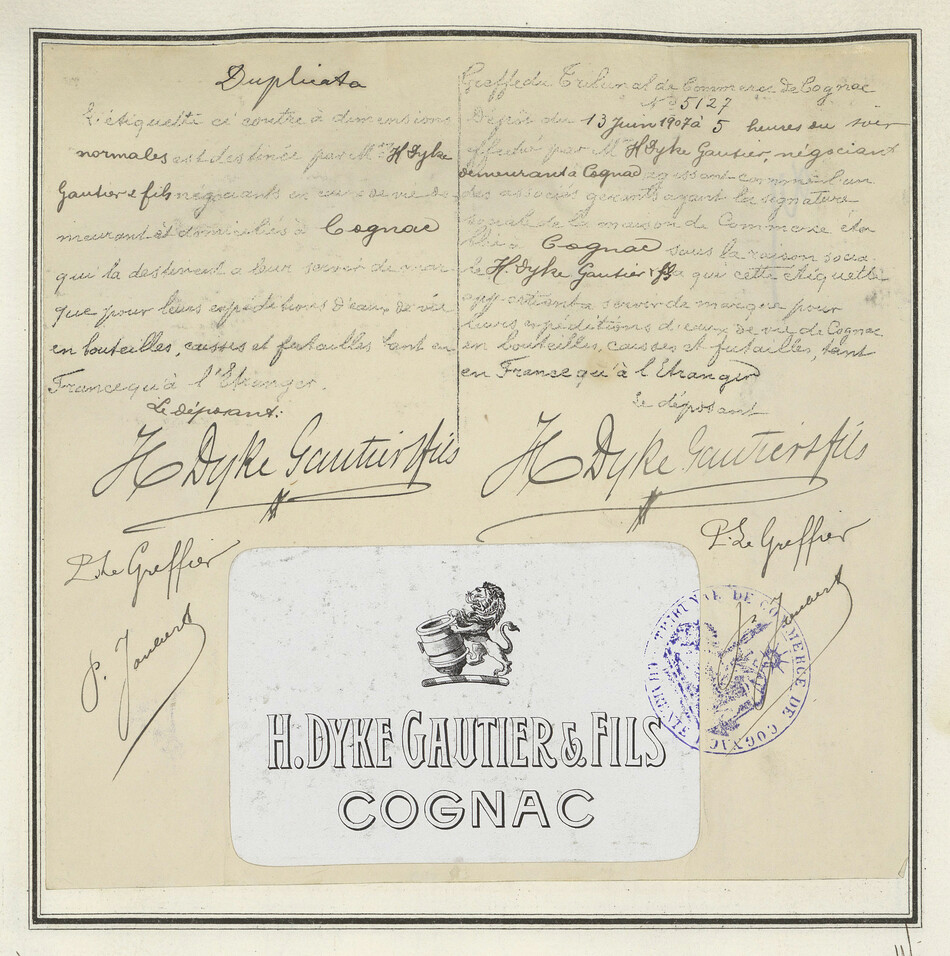 Duplicata
L'étiquette ci contre à dimensions
normales est destinée par Mrs H Dyke
Gautier & fils négociants en eaux de vie de-
meurant et domiciliés à Cognac
qui la destinent a leur servir de mar-
que pour leurs expéditions d'eaux de vie
en bouteilles, caisses et futailles tant en
France qu'à l'Etranger.
Le déposant:
H Dyke Gautier & fils
P. Le Greffier
P.
Greffe du Tribunal de Commerce de Cognac
No 5127
Dépôt du 13 Juin 1907 à 5 heures du soir
effectué par Mr H Dyke Gautier, négociant
demeurant à Cognac agissant comme l'un
des associés gérants ayant la signature
sociale de la maison de Commerce éta-
blie à Cognac sous la raison socia-
le H Dyke Gautier & fils a qui cette étiquette
appartient a servir de marque pour
leurs expéditions d'eaux de vie de Cognac
en bouteilles, caisses et futailles, tant
en France qu'à l'Etranger
Le déposant
H Dyke Gautier & fils
P. Le Greffier
TRIBUNAL DE COMMERCE DE COGNAC
H. DYKE GAUTIER & FILS
COGNAC